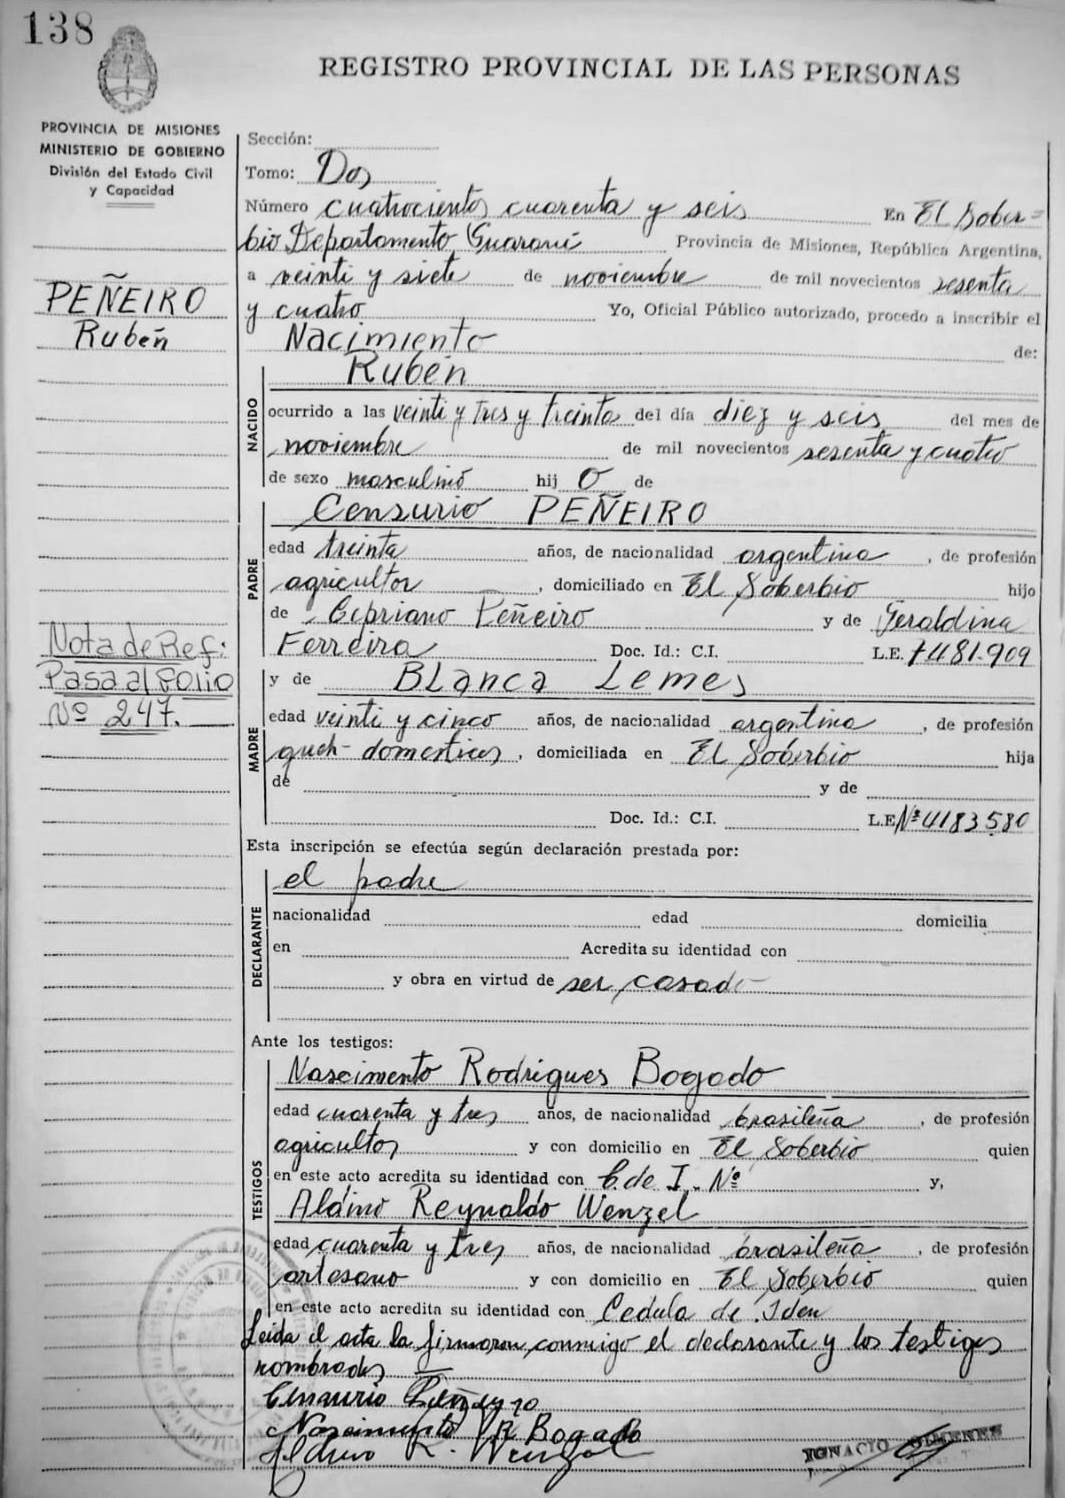 138
REGISTRO PROVINCIAL DE LAS PERSONAS
PROVINCIA DE MISIONES
MINISTERIO DE GOBIERNO
División del Estado Civil
y Capacidad
PEÑEIRO
Rubén
Nota de Ref:
Pasa al Folio
Nº 247.
Sección:
Tomo: Dos
Número cuatrocientos cuarenta y seis En El Sober=
bio Departamento Guaraní Provincia de Misiones, República Argentina,
a veinti y siete de noviembre de mil novecientos sesenta
y cuatro Yo, Oficial Público autorizado, procedo a inscribir el
Nacimiento de:
Rubén
NACIDO
ocurrido a las veinti y tres y treinta del día diez y seis del mes de
noviembre de mil novecientos sesenta y cuatro
de sexo masculino hij o de
Censurio PEÑEIRO
PADRE
edad treinta años, de nacionalidad argentina, de profesión
agricultor, domiciliado en El Soberbio hijo
de Cipriano Peñeiro y de Geraldina
Ferreira Doc. Id.: C.I. L.E. 7481.909
y de Blanca Lemes
MADRE
edad veinti y cinco años, de nacionalidad argentina, de profesión
queh- domesticos, domiciliada en El Soberbio hija
de y de
Doc. Id.: C.I. L.E. Nº 4183580
Esta inscripción se efectúa según declaración prestada por:
el padre
DECLARANTE
nacionalidad edad domicilia
en Acredita su identidad con
y obra en virtud de ser casado
Ante los testigos:
TESTIGOS
Nascimento Rodrigues Bogado
edad cuarenta y tres años, de nacionalidad brasileña, de profesión
agricultor y con domicilio en El Soberbio quien
en este acto acredita su identidad con C. de I. Nº y,
Aldino Reynaldo Wenzel
edad cuarenta y tres años, de nacionalidad brasileña, de profesión
artesano y con domicilio en El Soberbio quien
en este acto acredita su identidad con Cedula de Iden
Leida el acta la firmaron, conmigo el declarante y los testigos
nombrados
Censurio Peñeyro
Nascimento R Bogado
Aldino R. Wenzel
IGNACIO GIMENEZ